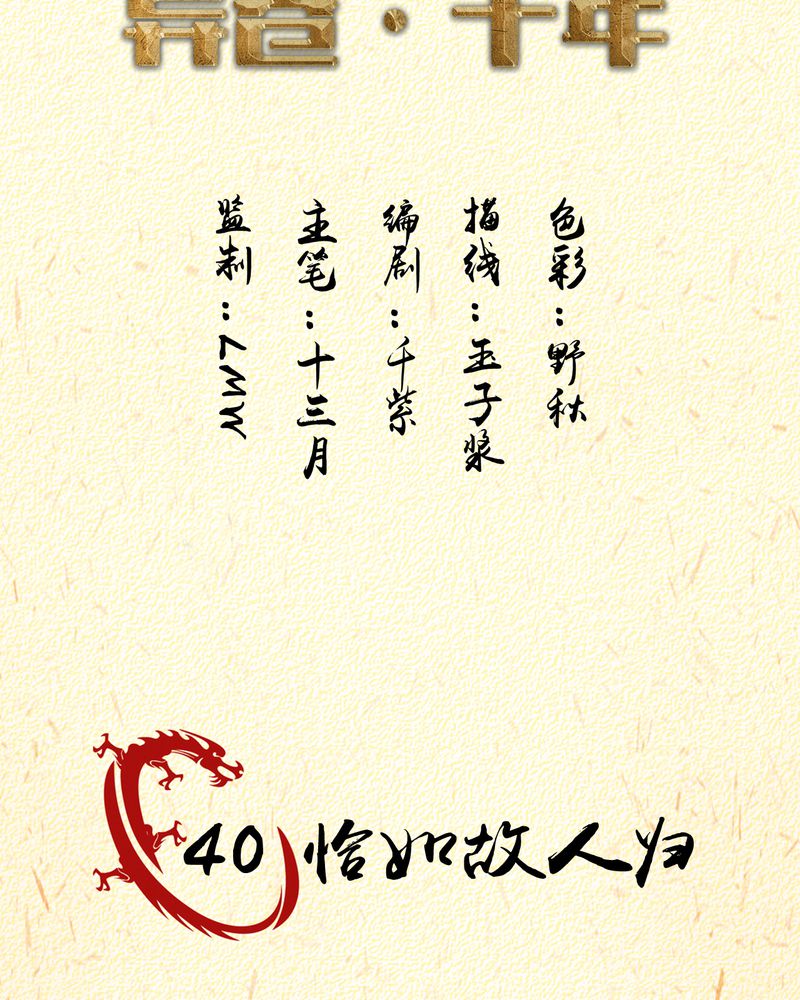 监制：MW7
主笔：十三月
编剧：千紫
描线：玉子浆
色彩：野秋
40 恰如故人归